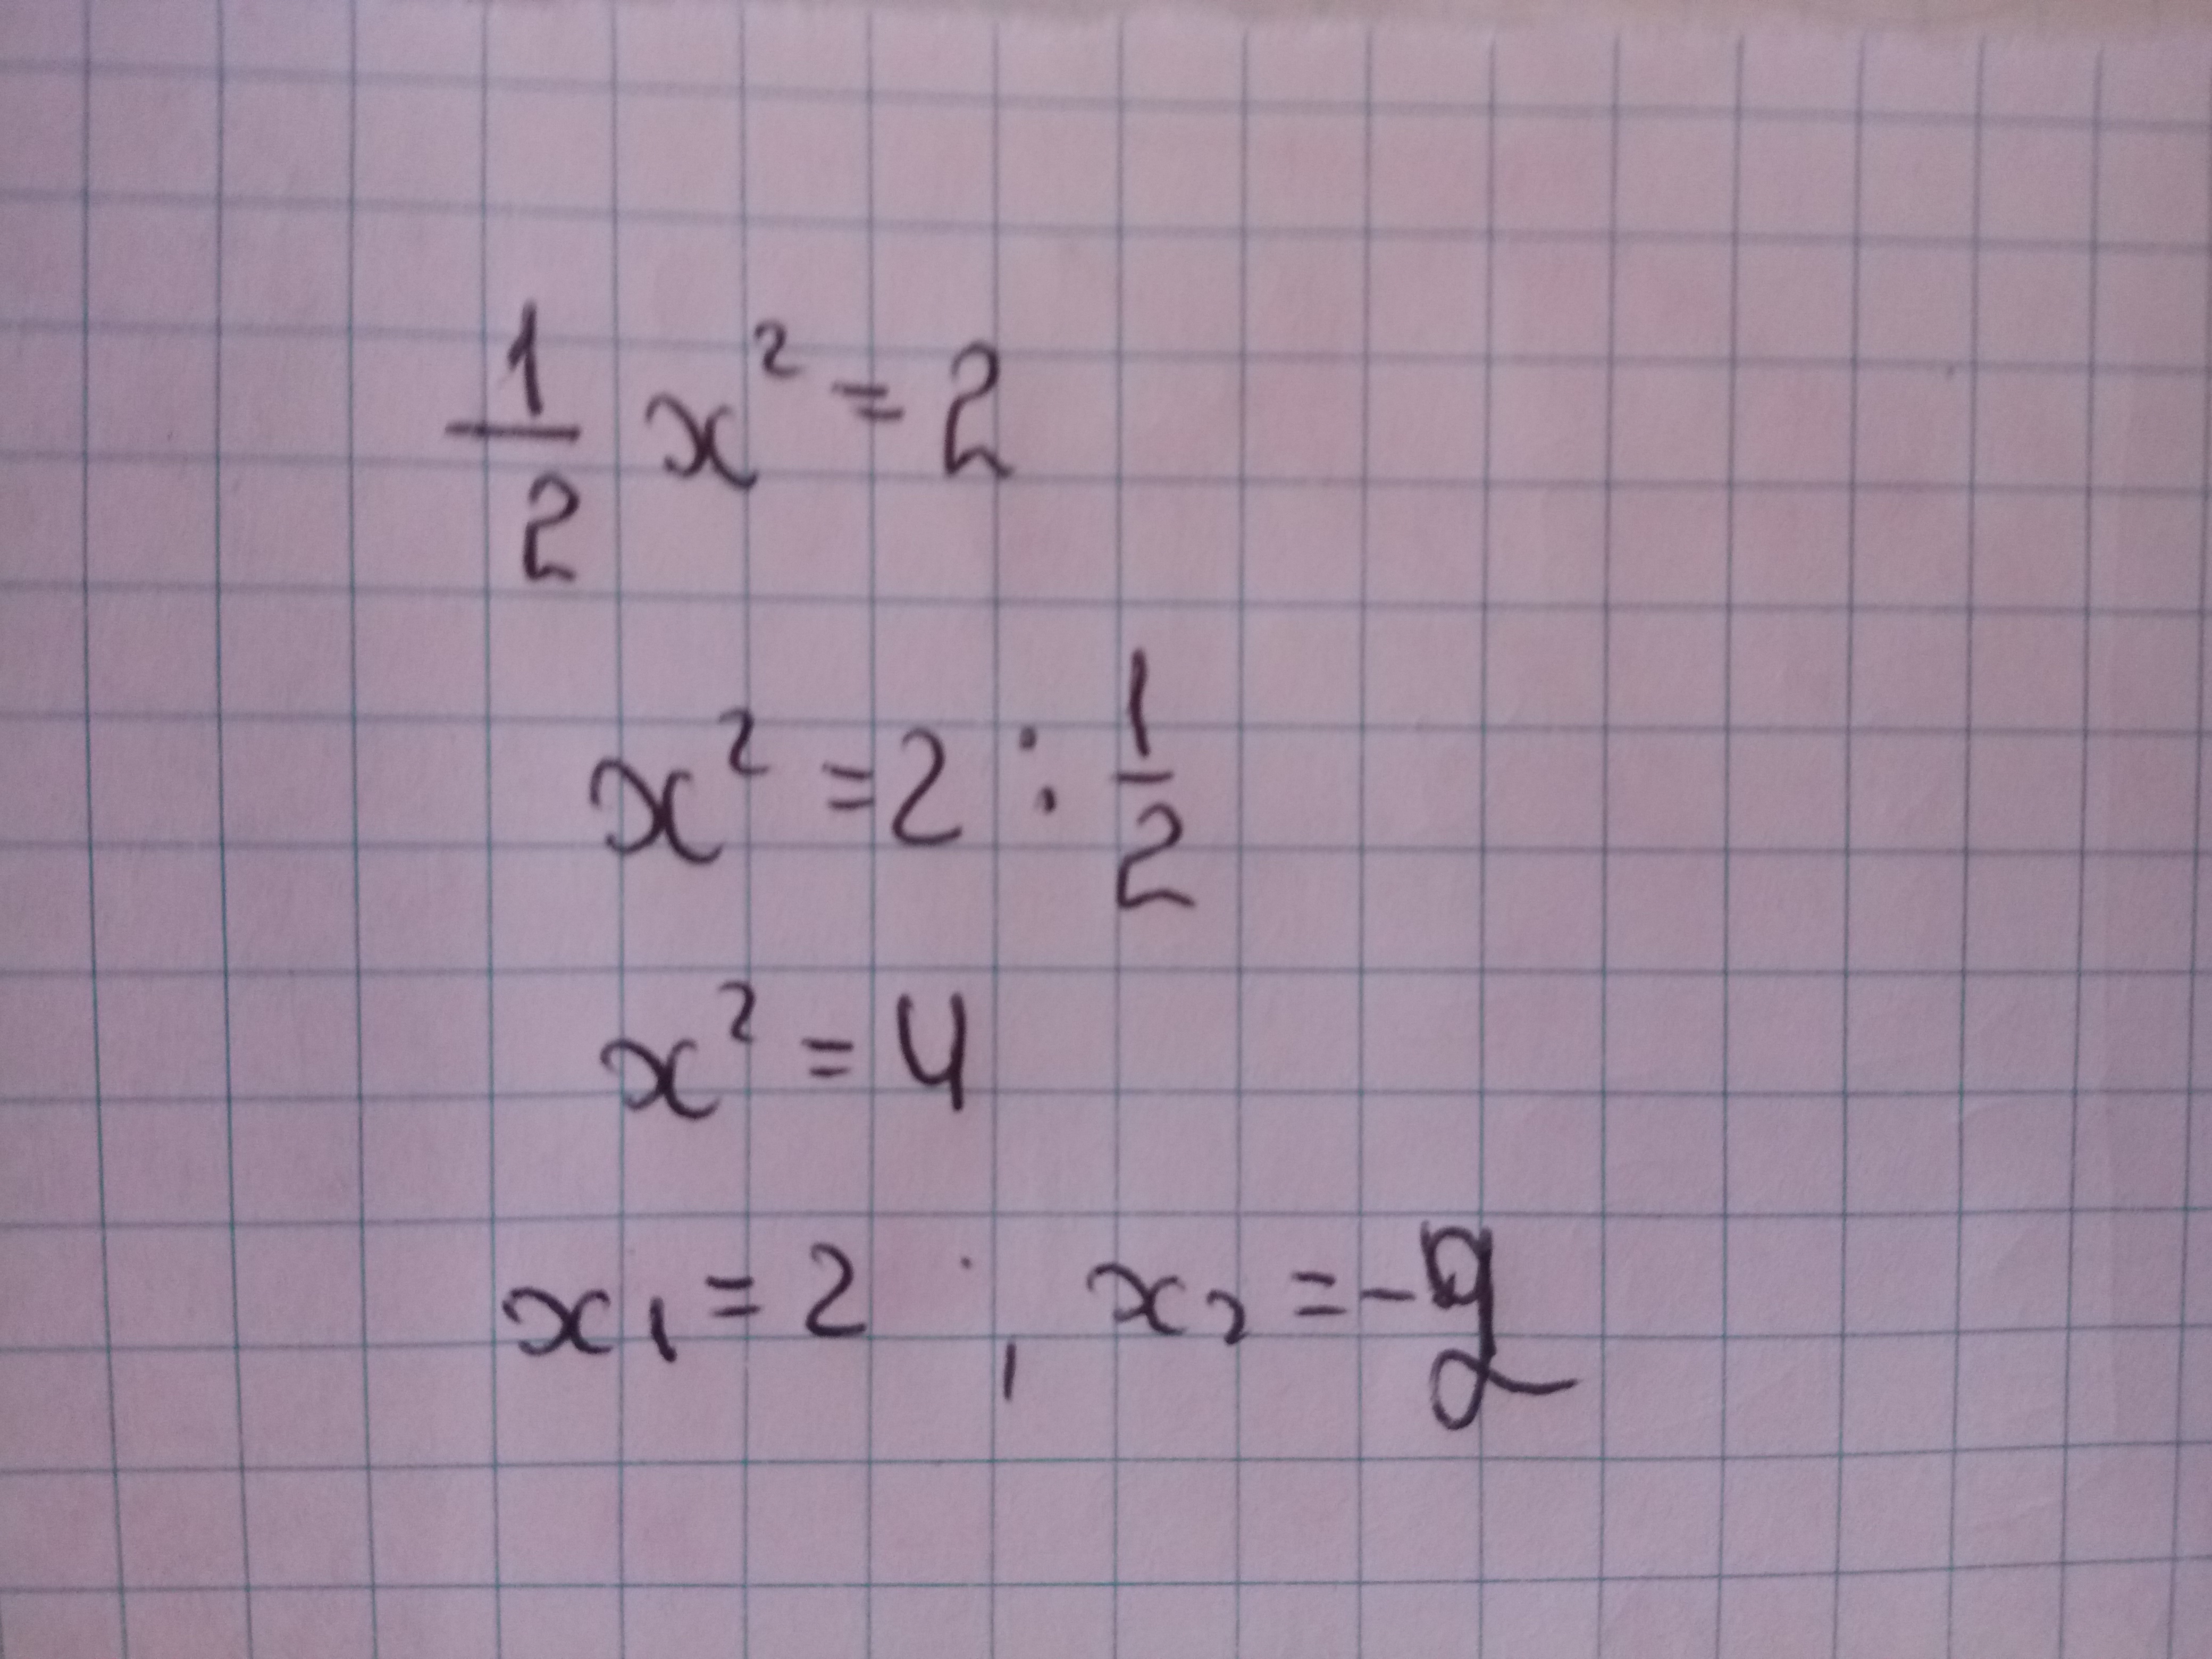 1/2 x² = 2
x² = 2 : 1/2
x² = 4
x₁ = 2 ; x₂ = -2